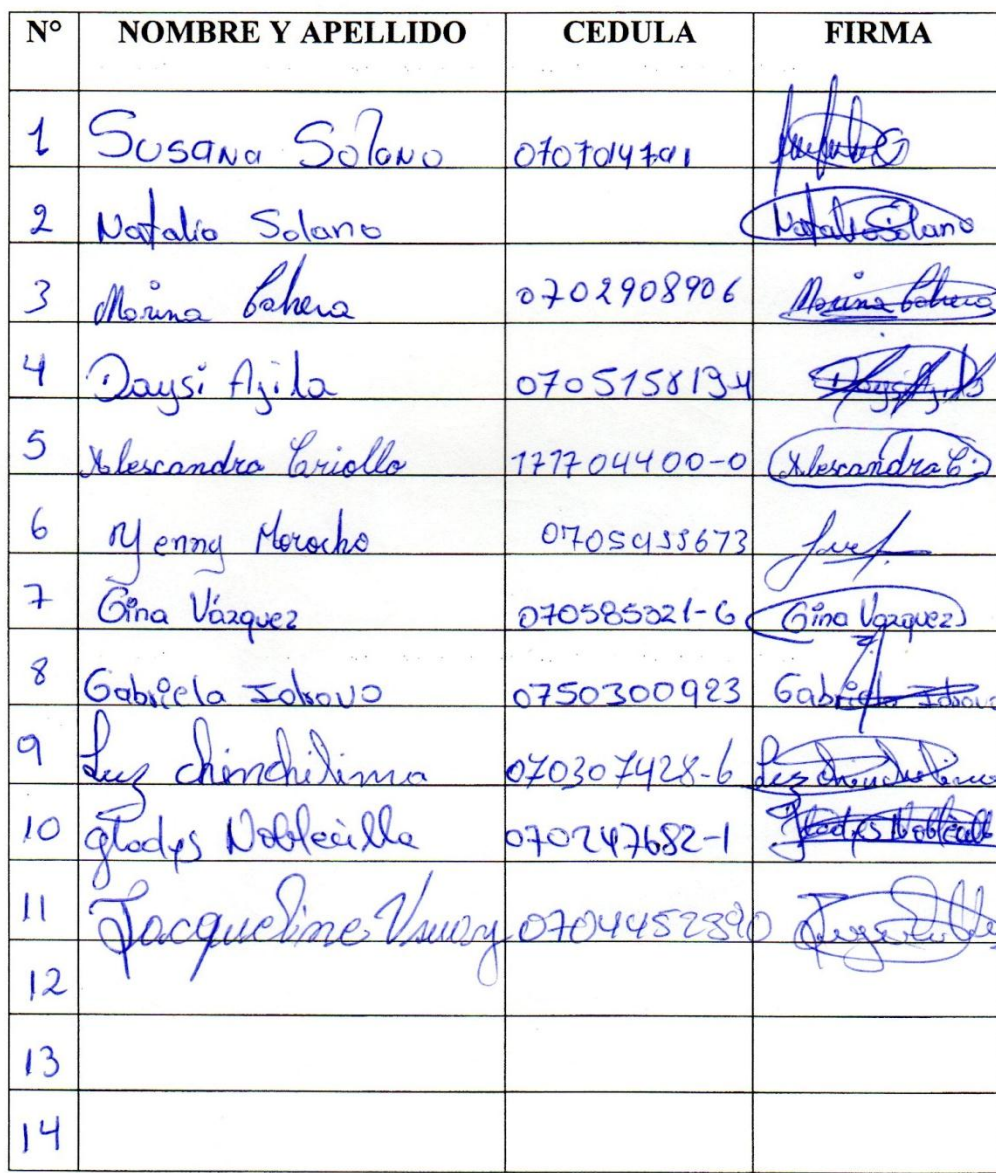 N° NOMBRE Y APELLIDO CEDULA FIRMA
1 Susana Solano
2 Natalia Solano Natalia Solano
3 Marina Cabrera 0702908906 Marina Cabrera
4 Daysi Ajila 070515819-4 Daysi Ajila
5 Alexandra Criollo 171704400-0 Alexandra C.
6 Yenny Morocho
7 Gina Vázquez 070585321-6 Gina Vazquez
8 Gabriela 0750300923 Gabriela
9 Luz Chinchilima 070307428-6 Luz Chinchilima
10 Gladys Noblecilla 070247682-1 Gladys Noblecilla
11 Jacqueline
12
13
14